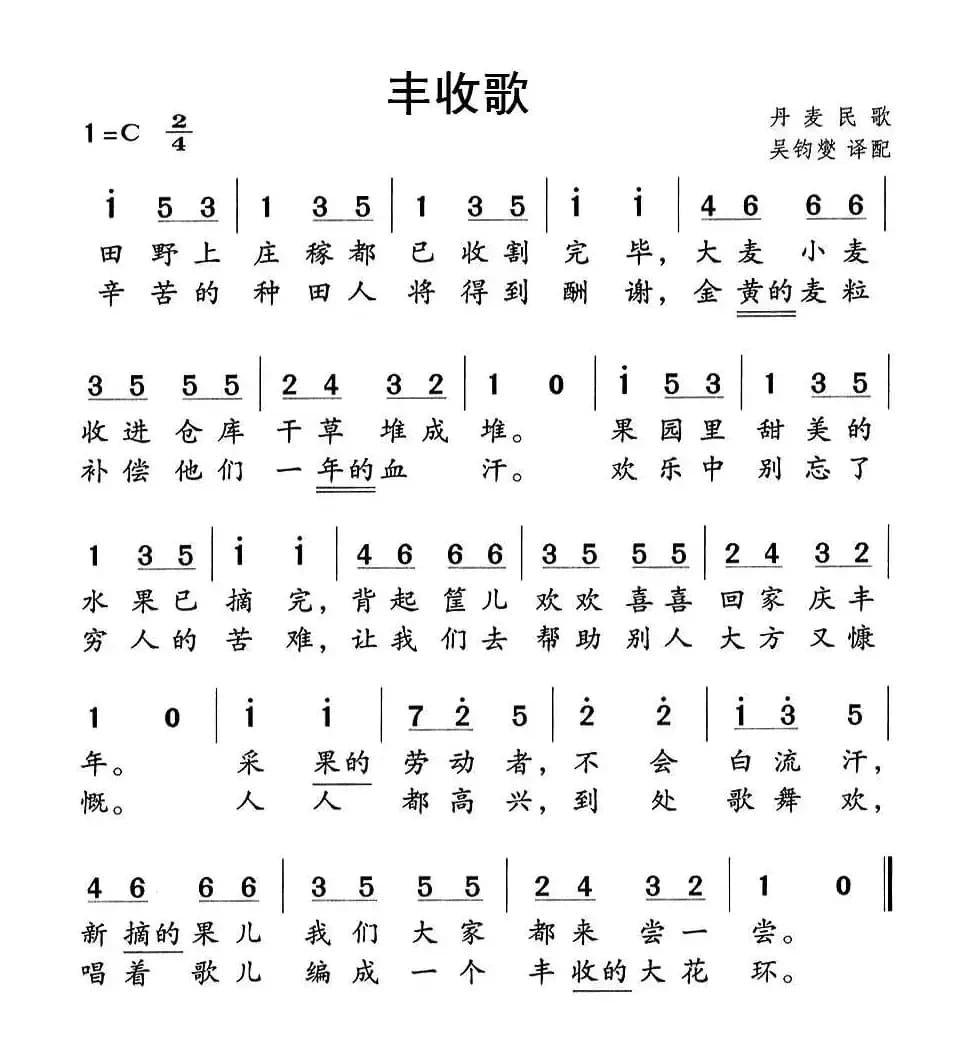 丰收歌
1=C 2/4
丹麦民歌
吴钧燮 译配
i 5 3 | 1 3 5 | 1 3 5 | i i | 4 6 6 6 |
田野上庄稼都已收割完毕，大麦小麦
辛苦的种田人将得到酬谢，金黄的麦粒
3 5 5 5 | 2 4 3 2 | 1 0 | i 5 3 | 1 3 5 |
收进仓库干草堆成堆。果园里甜美的
补偿他们一年的血汗。欢乐中别忘了
1 3 5 | i i | 4 6 6 6 | 3 5 5 5 | 2 4 3 2 |
水果已摘完，背起筐儿欢欢喜喜回家庆丰
穷人的苦难，让我们去帮助别人大方又慷
1 0 | i i | 7 2̇ 5 | 2̇ 2̇ | i 3̇ 5 |
年。采果的劳动者，不会白流汗，
慨。人人都高兴，到处歌舞欢，
4 6 6 6 | 3 5 5 5 | 2 4 3 2 | 1 0 ‖
新摘的果儿我们大家都来尝一尝。
唱着歌儿编成一个丰收的大花环。